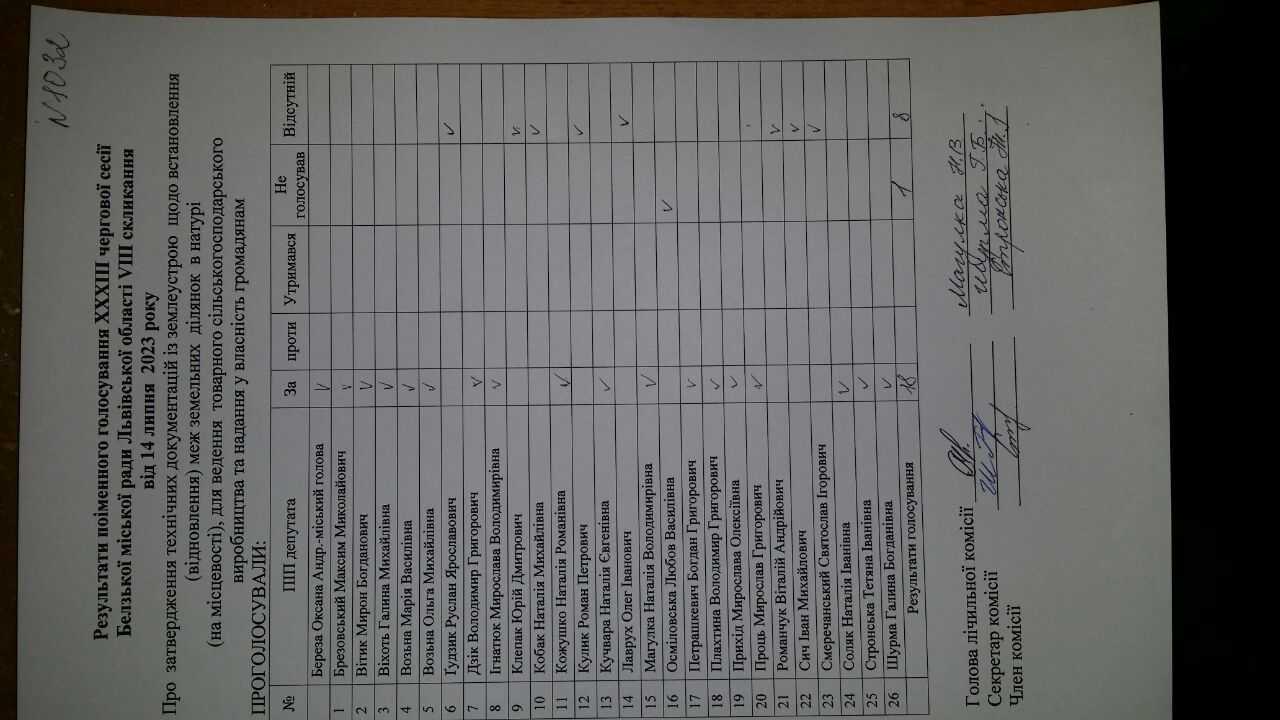 N 103д
Результати поіменного голосування XXXIII чергової сесії
Белзької міської ради Львівської області VIII скликання
від 14 липня 2023 року
Про затвердження технічних документацій із землеустрою щодо встановлення
(відновлення) меж земельних ділянок в натурі
(на місцевості), для ведення товарного сільськогосподарського
виробництва та надання у власність громадянам
ПРОГОЛОСУВАЛИ:
№ ПІП депутата За проти Утримався Не голосував Відсутній
Береза Оксана Андр.-міський голова v
1 Брезовський Максим Миколайович v
2 Вітик Мирон Богданович v
3 Вікоть Галина Михайлівна v
4 Возьна Марія Василівна v
5 Возьна Ольга Михайлівна v
6 Гудзик Руслан Ярославович v
7 Дзік Володимир Григорович v
8 Ігнатюк Мирослава Володимирівна v
9 Клепак Юрій Дмитрович v
10 Кобак Наталія Михайлівна v
11 Кожушко Наталія Романівна v
12 Кулик Роман Петрович v
13 Кучвара Наталія Євгенівна v
14 Лаврух Олег Іванович v
15 Магулка Наталія Володимирівна v
16 Осміловська Любов Василівна v
17 Петрашкевич Богдан Григорович v
18 Плахтина Володимир Григорович v
19 Прихід Мирослава Олексіївна v
20 Проць Мирослав Григорович v
21 Романчук Віталій Андрійович v
22 Сич Іван Михайлович v
23 Смеречанський Святослав Ігорович v
24 Соляк Наталія Іванівна v
25 Стронська Тетяна Іванівна v
26 Шурма Галина Богданівна v
Результати голосування 18 1 8
Голова лічильної комісії Магулка Н.В
Секретар комісії Шурма Г.Б.
Член комісії Стронська Т.І